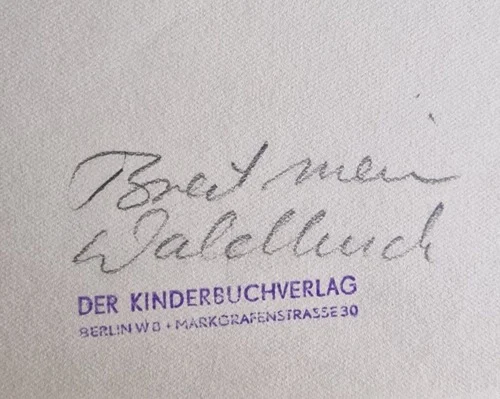 Breit mein
Waldbuch
DER KINDERBUCHVERLAG
BERLIN W 8 • MARKGRAFENSTRASSE 30